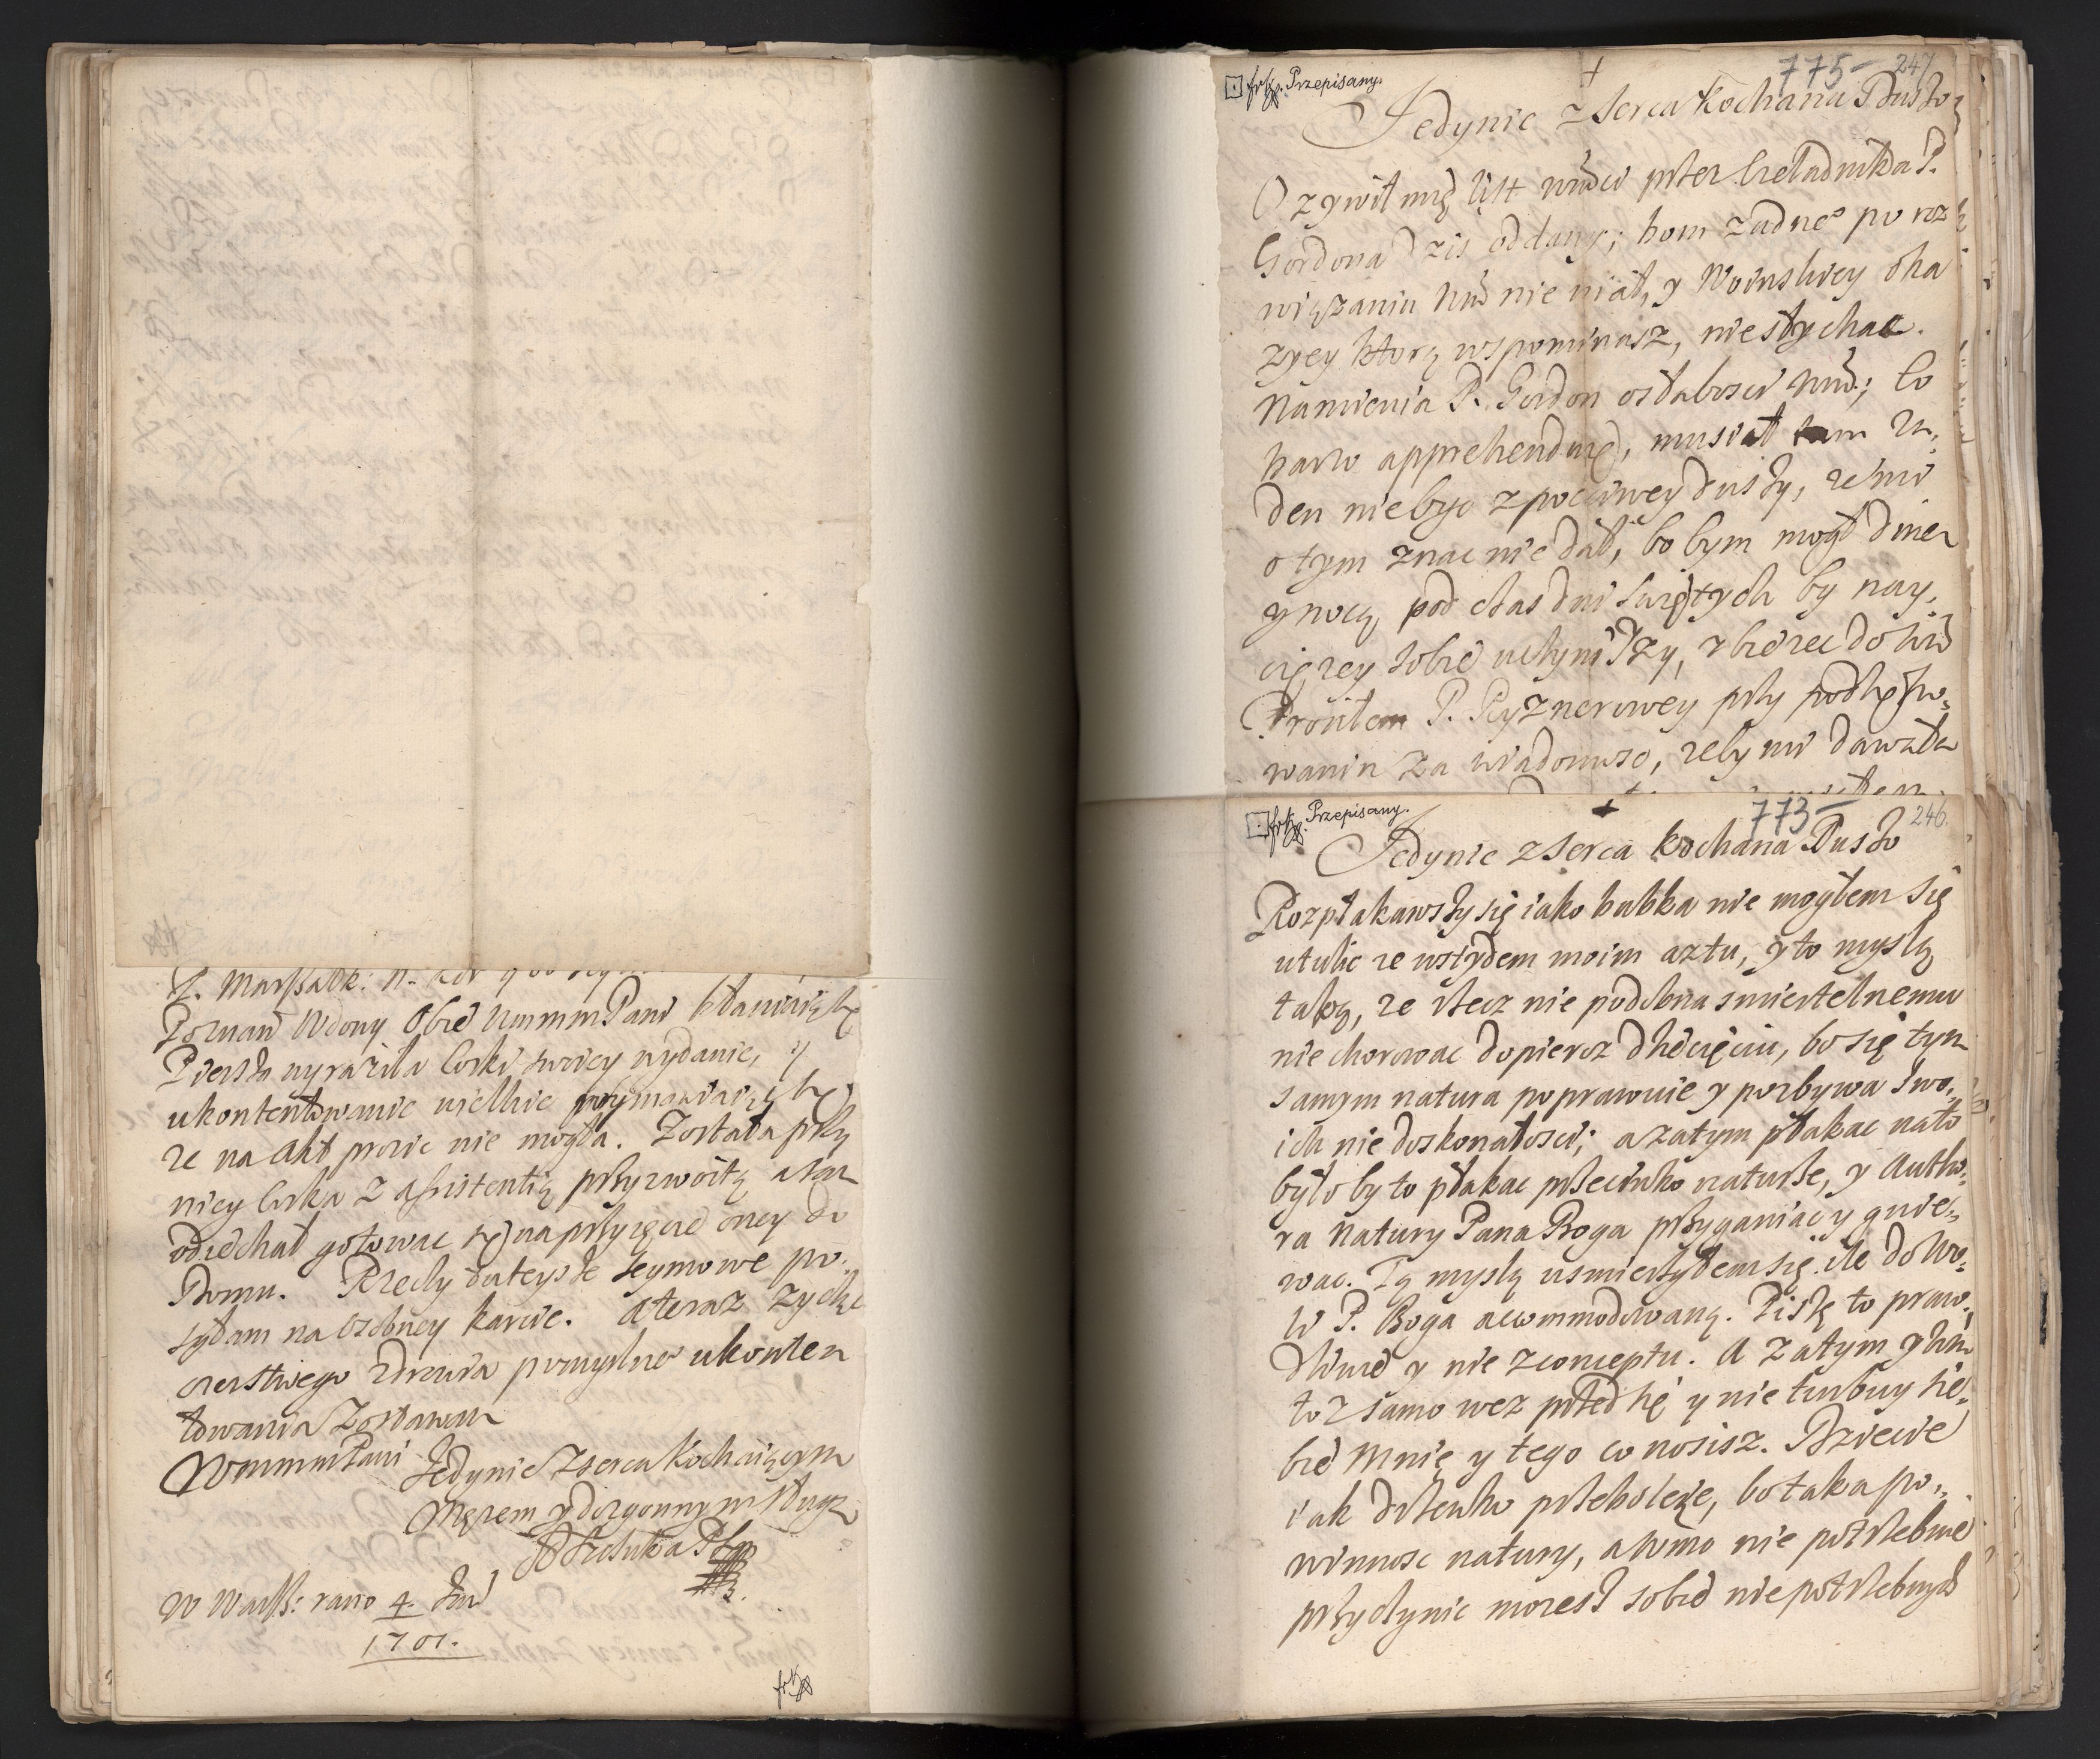 P. Marszałk: N. Kor
Poznań Wdowy Obie WmmmPani kłaniaią się
Piersza wyraziła Corki swoiey wydanie, y
ukontentowanie wielkie
ze na Akt prosic nie mogła. Została przy
niey Corka z assistentią przyzwoitą a Star
odiechał gotowac się na przyięcie oney do
Domu. Rzeczy duteysze Seymowe po,
syłam na osobney karcie. A teraz życzę
czerstwego zdrowia pomyslne° ukonten
towania Zostawam
WmmmPani Jedynie z serca Kochaiącym
Mężem y dozgonnym Sługą
W Warsz: rano 4. Jun
1701.
frk
[.] frk. Przepisany. + 775- 247
Jedynie z serca Kochana Duszo
Ozywił mię list wmsci przez Czeladnika P.
Gordona Dzis oddany; bom zadne° po roz
wiązaniu Wm nie miał, y Woinskiey oka
zyey ktorą wspominasz, nie słychac.
Namienia P. Gordon osłabosci Wm; Co
barzo apprehenduię, musiał tam za,
den niebyc z poczciwey duszy, ze mi
o tym znac nie dał, bo bym mogł dniem
y nocą pod czas dni swiętych by nay,
cięzey sobie uczyniwszy, zbiezec do Wm
Prosiłem P. Pyznerowey przy podzięko,
wania za wiadomosc, zeby mi dawała
[.] frk. Przepisany. + 773- 246.
Jedynie z serca kochana Duszo
Rozpłakawszy się iako babka nie mogłem się
utulic ze wstydem moim aztu, y to myslą
taką, ze rzecz nie podobna smiertelnemu
nie chorowac dopieroz dziecięciu, bo się tym
samym natura poprawuie y pozbywa swo,
ich nie doskonałosci; a zatym płakac nato
było by to płakac przeciwko naturze, y Autho,
ra Natury Pana Boga przyganiac y gnie,
wac. Tą myslą usmierzyłem się ile do wo,
li P. Boga accommodowaną. Piszę to praw,
dziwie y nie zconceptu. A zatym y Wm
toz samo wez przed się y nie turbuy sie,
bie Mnie y tego co nosisz. Dziecie
iak dziecko przeboleie, bo taka po,
winnosc natury, a Wmo nie potrzebnie
przyczynic mozesz sobie niepotrzebnych